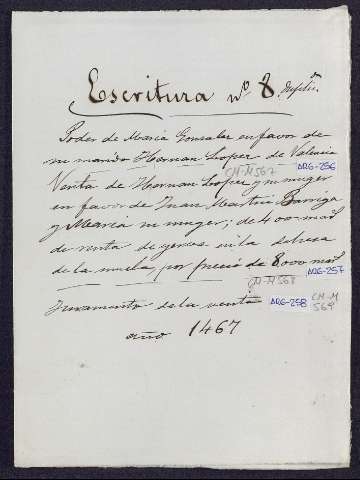 Escritura nº 8
Poder de Maria Gonzalez en favor de
su marido Hernan Loper de Valencia
CM-M567 ARG-256
Venta de Hernan Looper y su muger
en favor de Juan Martin Barriga
y Maria su muger; de 400 mrs
de renta de yervas en la dehesa
de la mula, por precio de 8000 mrs
CM-M568 ARG-257
Juramento de la venta ARG-258 CM-M
569
año 1467